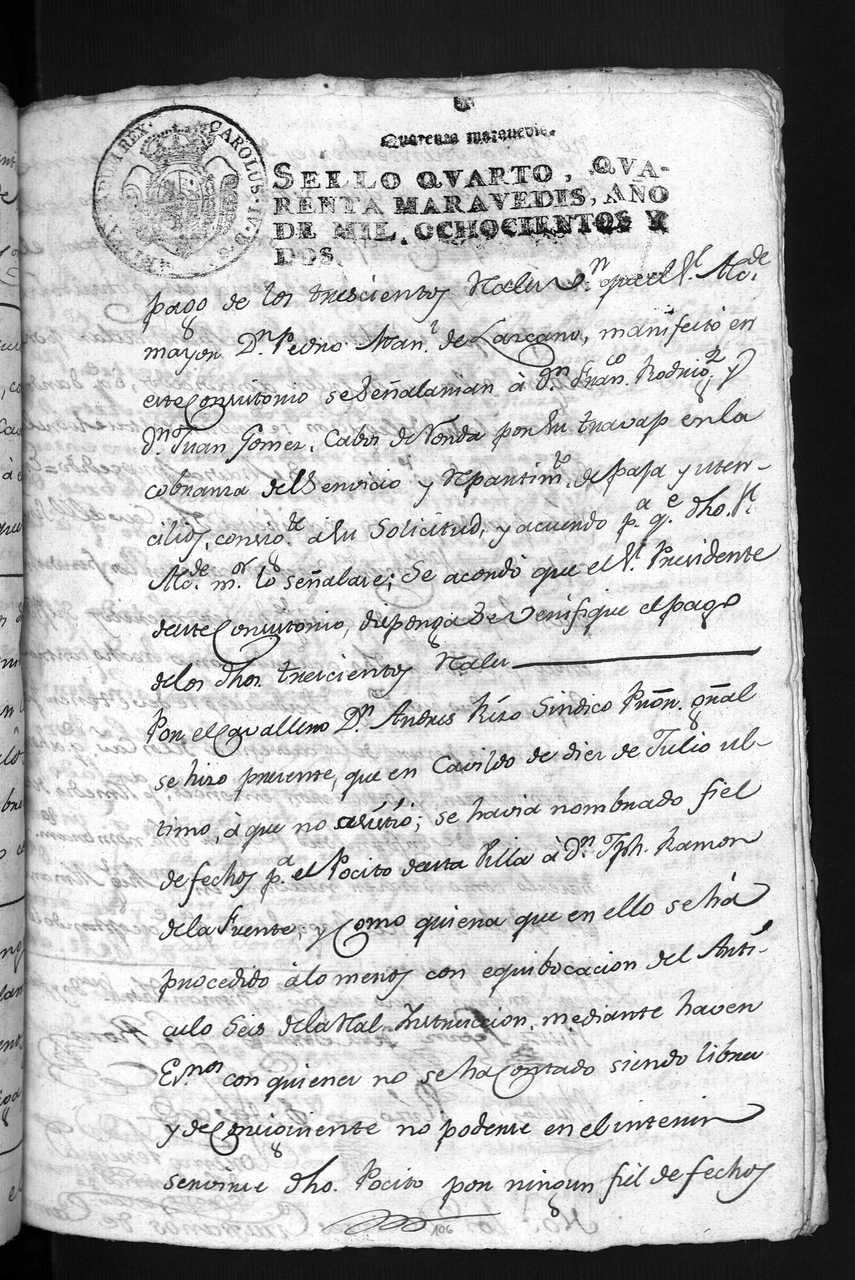 CAROLUS·IV·D·G· HISPANIAR·REX·
Quarenta maravedis.
SELLO QVARTO, QVA-
RENTA MARAVEDIS, AÑO
DE MIL OCHOCIENTOS Y
DOS.
pago de los trescientos Rales Vn. que el Sr. Alcde.
mayor Dn. Pedro Manl. de Lazcano, manifestó en
este Consistorio se Señalarian à Dn. Francо. Rodrigz. y
Dn. Juan Gomez, Cabos de Ronda por su travajo en la
cobranza del Servicio y Repartimto. de paja y uten-
cilios, conseqte. a su Solicitud, y acuerdo pa. qe. dho. Sr.
Alcde. mor. lo señalase; Se acordó que el Sr. Presidente
de este Consistorio, disponga Se Verifique el pago
de los dhos. trescientos Rales
Por el Cavallero Dn. Andres Rizo Sindico Prōn. gñal
se hizo presente, que en Cavildo de diez de Julio ul-
timo, à que no asistió; se havia nombrado fiel
de fechos pa. el Pocito de esta Villa à Dn. Jph. Ramon
de la Fuente, y Como quiera que en ello se há
procedido à lo menos con equibocacion del Artí-
culo Seis de la Ral. Instruccion, mediante haver
Esnos. con quienes no se ha Contado siendo libres
y de Consiguiente no poderse en el interin
servirse dho. Pocito por ningun fiel de fechos
106